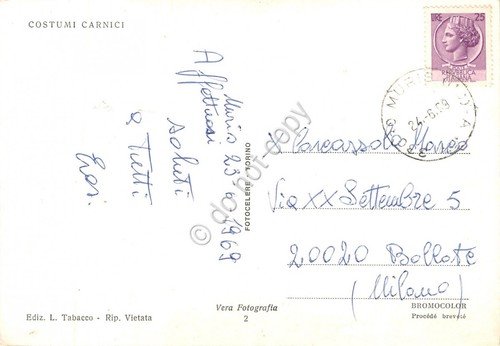 COSTUMI CARNICI
LIRE 25
REPUBBLICA
ITALIANA
24-6.69
Muris 23 6 1969
Affettuosi
saluti
a Tutti
Eros.
FOTOCELERE - TORINO
do not copy
Marco
Via XX Settembre 5
20020 Bollate
(Milano)
Vera Fotografia
2
BROMOCOLOR
Procédé breveté
Ediz. L. Tabacco - Rip. Vietata